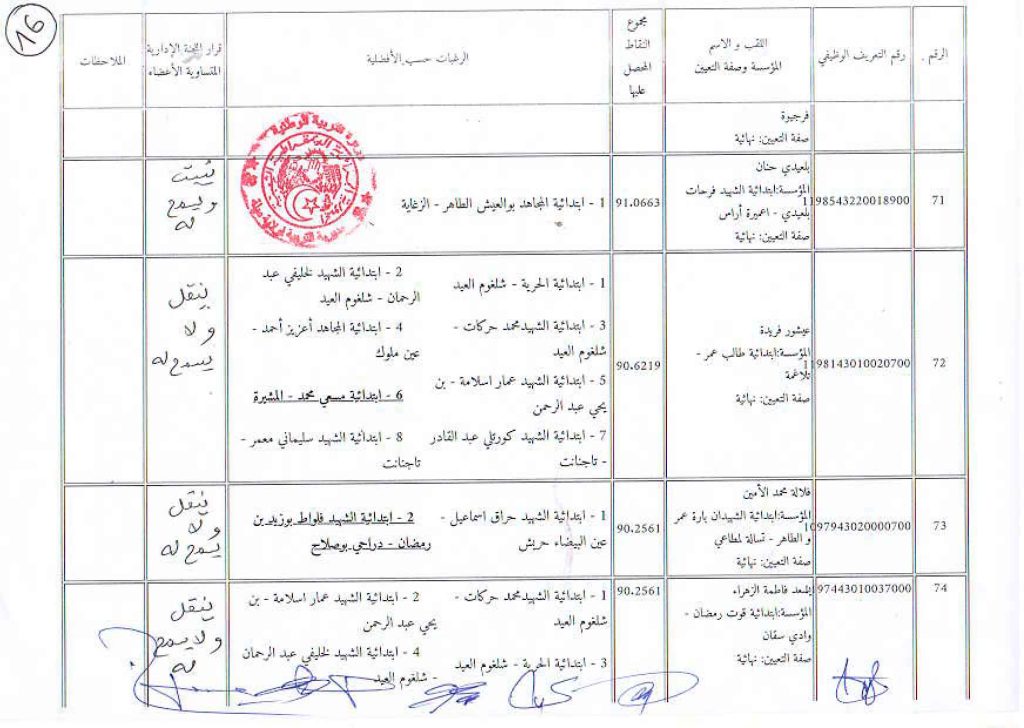 16
الرقم .
رقم التعريف الوظيفي
اللقب و الاسم
المؤسسة وصفة التعيين
مجموع
النقاط
المحصل
عليها
الرغبات حسب الأفضلية
قرار اللجنة الإدارية
المتساوية الأعضاء
الملاحظات
فرجيوة
صفة التعيين: نهائية
71
198543220018900
بلعيدي حنان
المؤسسة:ابتدائية الشهيد فرحات
بلعيدي - اعميرة أراس
صفة التعيين: نهائية
91.0663
1 - ابتدائية المجاهد بوالعيش الطاهر - الزغاية
يُثبت
و يسمح
له
72
198143010020700
عيشور فريدة
المؤسسة:ابتدائية طالب عمر -
تلاغمة
صفة التعيين: نهائية
90.6219
1 - ابتدائية الحرية - شلغوم العيد
2 - ابتدائية الشهيد لخليفي عبد
الرحمان - شلغوم العيد
3 - ابتدائية الشهيدمحمد حركات -
شلغوم العيد
4 - ابتدائية المجاهد أعزيز أحمد -
عين ملوك
5 - ابتدائية الشهيد عمار اسلامة - بن
يحي عبد الرحمن
6 - ابتدائية مسعي محمد - المشيرة
7 - ابتدائية الشهيد كورتلي عبد القادر
- تاجنانت
8 - ابتدائية الشهيد سليماني معمر -
تاجنانت
ينقل
و لا
يسمح له
73
197943020000700
فلالة محمد الأمين
المؤسسة:ابتدائية الشهيدان بارة عمر
و الطاهر - تسالة لمطاعي
صفة التعيين: نهائية
90.2561
1 - ابتدائية الشهيد حراق اسماعيل -
عين البيضاء حريش
2 - ابتدائية الشهيد فلواط بوزيد بن
رمضان - دراحي بوصلاح
ينقل
و لا
يسمح له
74
197443010037000
بلسعد فاطمة الزهراء
المؤسسة:ابتدائية قوت رمضان -
وادي سقان
صفة التعيين: نهائية
90.2561
1 - ابتدائية الشهيدمحمد حركات -
شلغوم العيد
2 - ابتدائية الشهيد عمار اسلامة - بن
يحي عبد الرحمن
3 - ابتدائية الحرية - شلغوم العيد
4 - ابتدائية الشهيد لخليفي عبد الرحمان
- شلغوم العيد
ينقل
و لا يسمح
له
وزارة التربية الوطنية
مديرية التربية لولاية ميلة